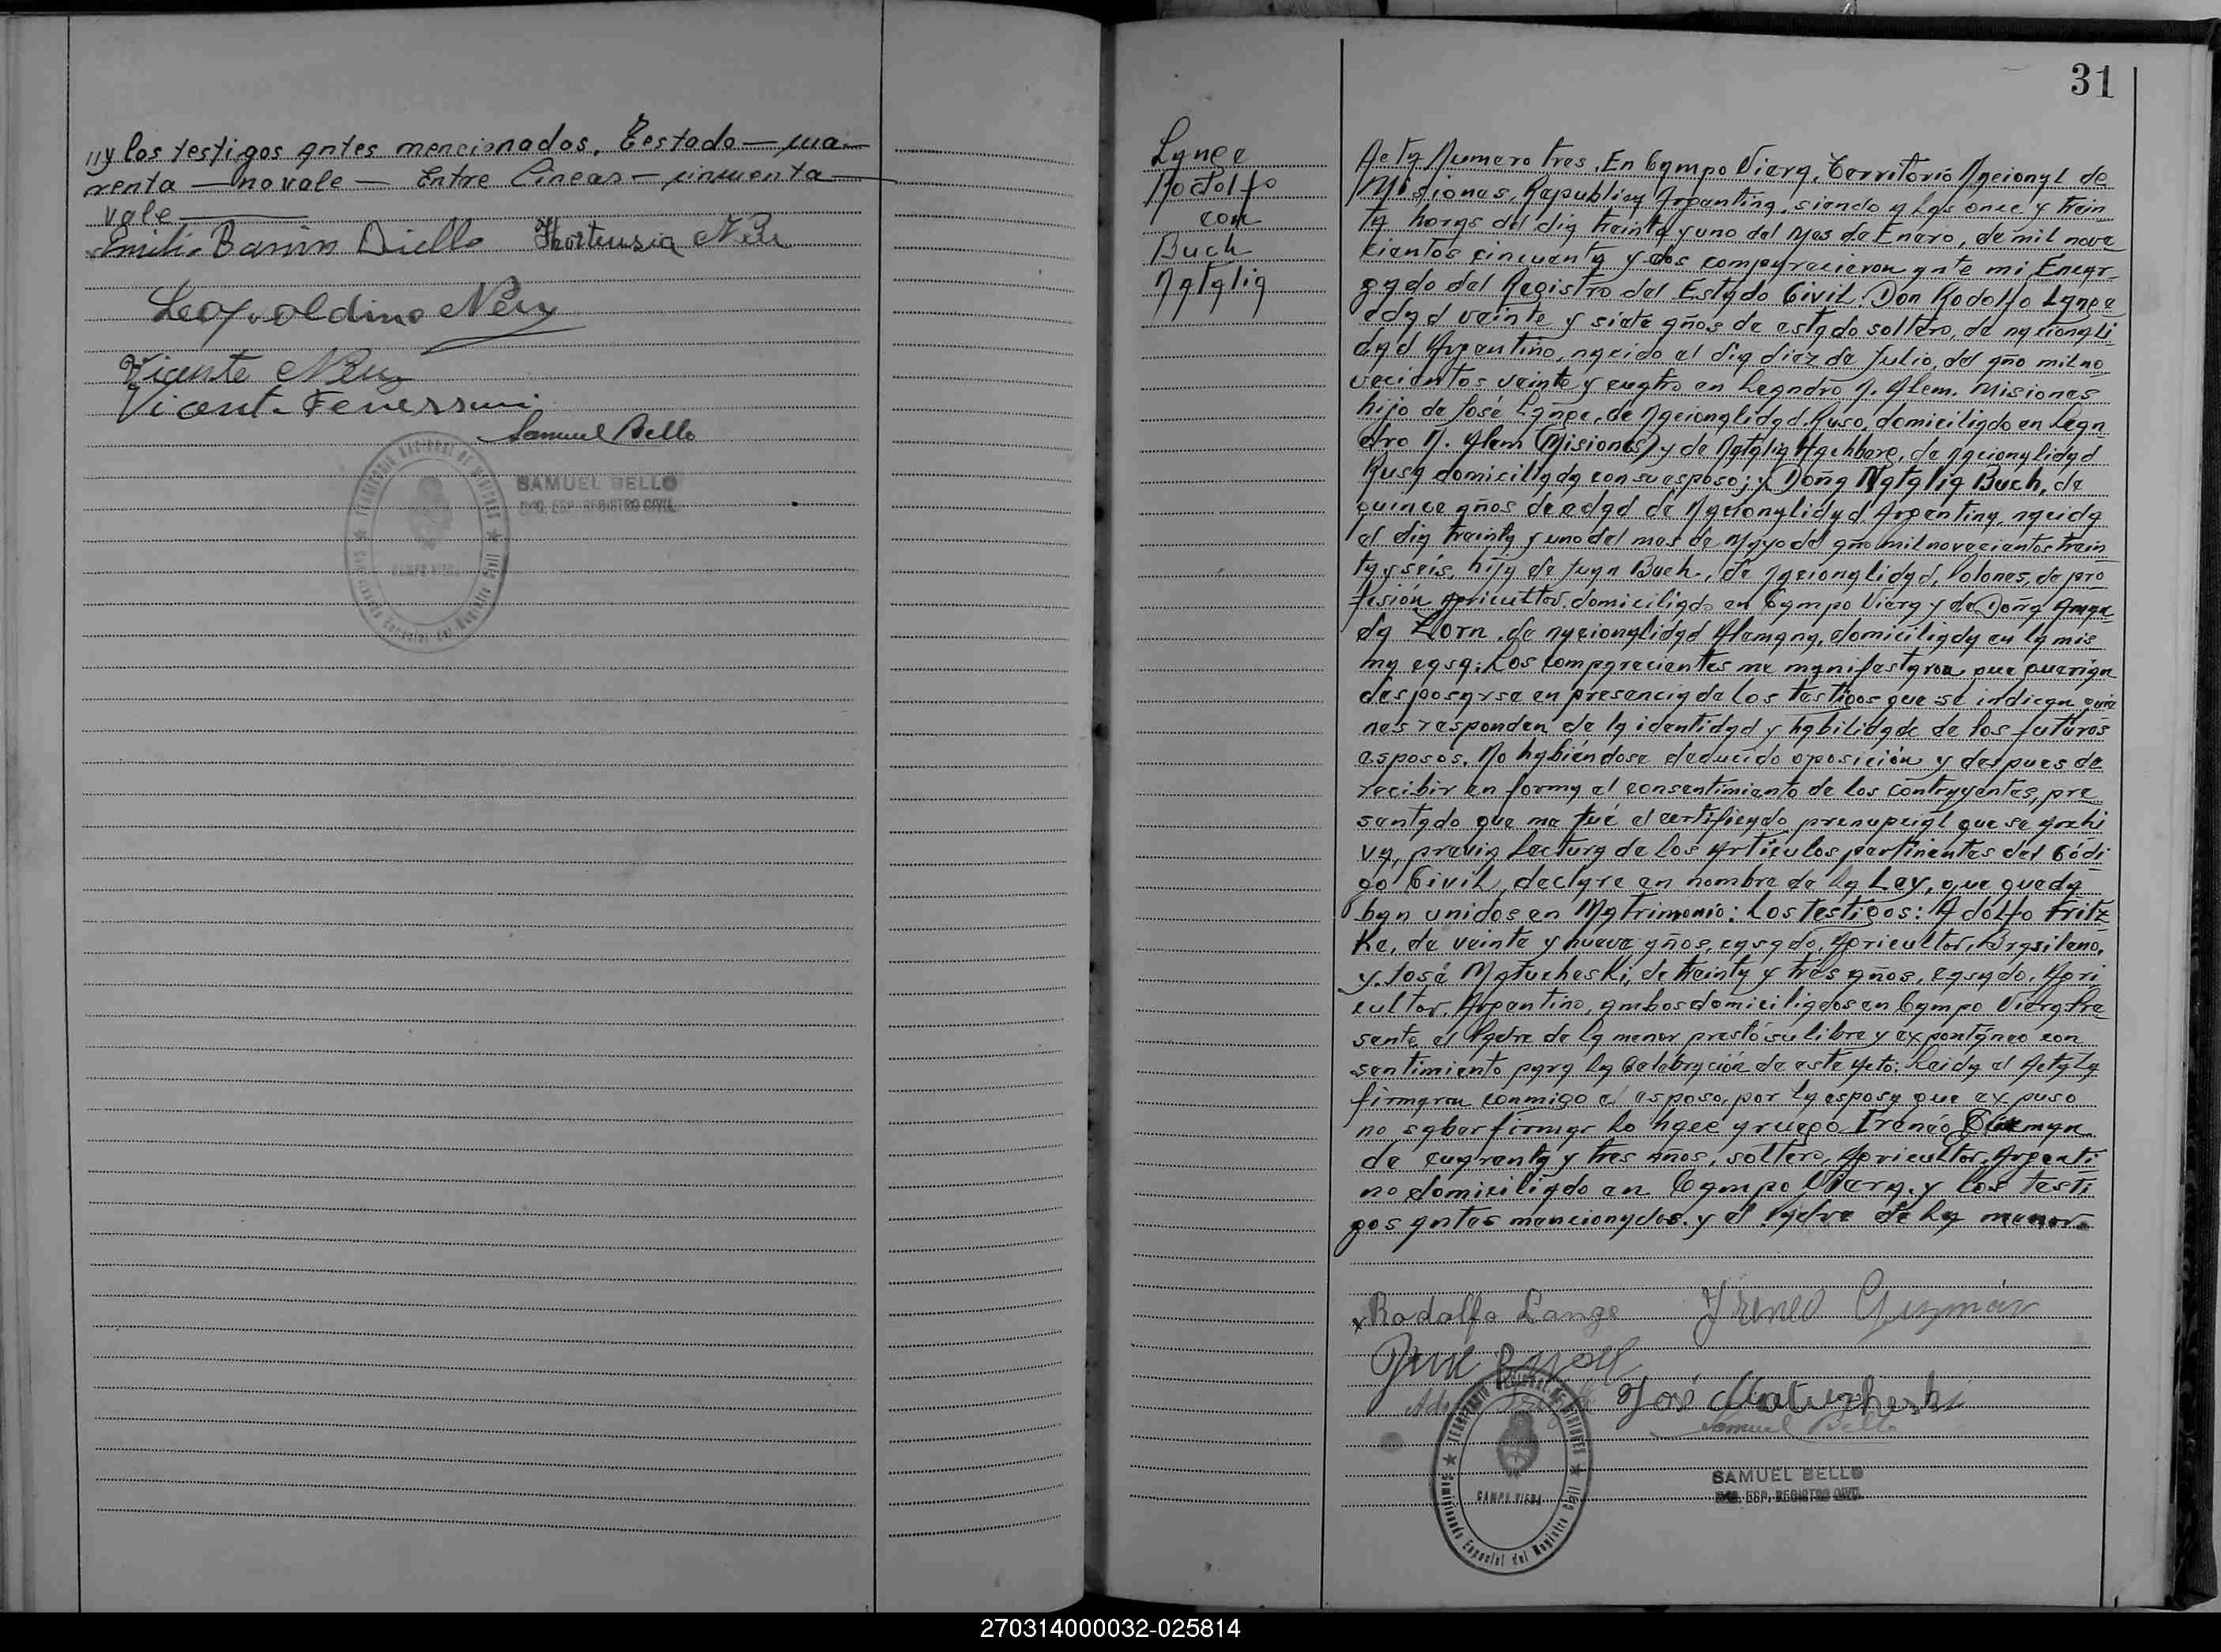 //y los testigos antes mencionados. Testado — cua—
renta — no vale — Entre lineas — cincuenta —
vale —
Diello Hortensia Neu
Leopoldino Neu
Vicente Neu
Vicent
Samuel Bello
TERRITORIO NACIONAL DE MISIONES
CAMPO VIERA
Comisionado Especial del Registro Civil
SAMUEL BELLO
ESP. REGISTRO CIVIL
31
Lange
Rodolfo
con
Buch
Natalia
Acta Numero tres. En Campo Viera, Territorio Nacional de
Misiones, Republica Argentina, siendo a las once y trein
ta horas del dia treinta y uno del Mes de Enero, de mil nove
cientos cincuenta y dos comparecieron ante mi Encar
gado del Registro del Estado Civil. Don Rodolfo Lange
edad veinte y siete años de estado soltero, de nacionali
dad Argentino, nacido el dia diez de Julio, del año mil no
vecientos veinte y cuatro en Leandro N. Alem. Misiones
hijo de José Lange, de Nacionalidad Ruso, domiciliado en Lean
dro N. Alem (Misiones) y de Natalia Hachbare, de Nacionalidad
Rusa domiciliada con su esposo; y Doña Natalia Buch, de
quince años de edad de Nacionalidad Argentina, nacida
el dia treinta y uno del mes de Mayo del año mil novecientos trein
ta y seis, hija de Juan Buch, de Nacionalidad, Polones, de pro
fesión Agricultor domiciliado en Campo Viera y de Doña Aman
da Zorn, de nacionalidad Alemana, domiciliada en la mis
ma casa: Los comparecientes me manifestaron que querian
desposarse en presencia de los testigos que se indican quie
nes responden de la identidad y habilidade de los futuros
esposos. No habiéndose deducido oposición y despues de
recibir en forma el consentimiento de los contrayentes, pre
sentado que me fué el certificado prenupcial que se archi
va, previa lectura de los Articulos pertinentes del Códi
go Civil, declare en nombre de la Ley, que queda
ban unidos en Matrimonio: Los testigos: Adolfo Fritz
Ke, de veinte y nueve años, casado, Agricultor, Brasilano,
y José Matucheski, de treinta y tres años, casado, Agri
cultor, Argentino, ambos domiciliados en Campo Viera. Pre
sente el Padre de la menor prestó su libre y expontáneo con
sentimiento para la celebración de este Acto: Leida el Acta La
firmaron conmigo el esposo, por la esposa que expuso
no saber firmar lo hace a ruego Ireneo Guzman
de cuarenta y tres años, soltero, Agricultor, Argenti
no domiciliado en Campo Viera, y los testi
gos antes mencionados. y el Padre de La menor.
x Rodolfo Lange Ireneo Guzmán
José Matucheski
Samuel Bello
TERRITORIO NACIONAL DE MISIONES
CAMPO VIERA
Comisionado Especial del Registro Civil
SAMUEL BELLO
ESP. REGISTRO CIVIL
270314000032-025814